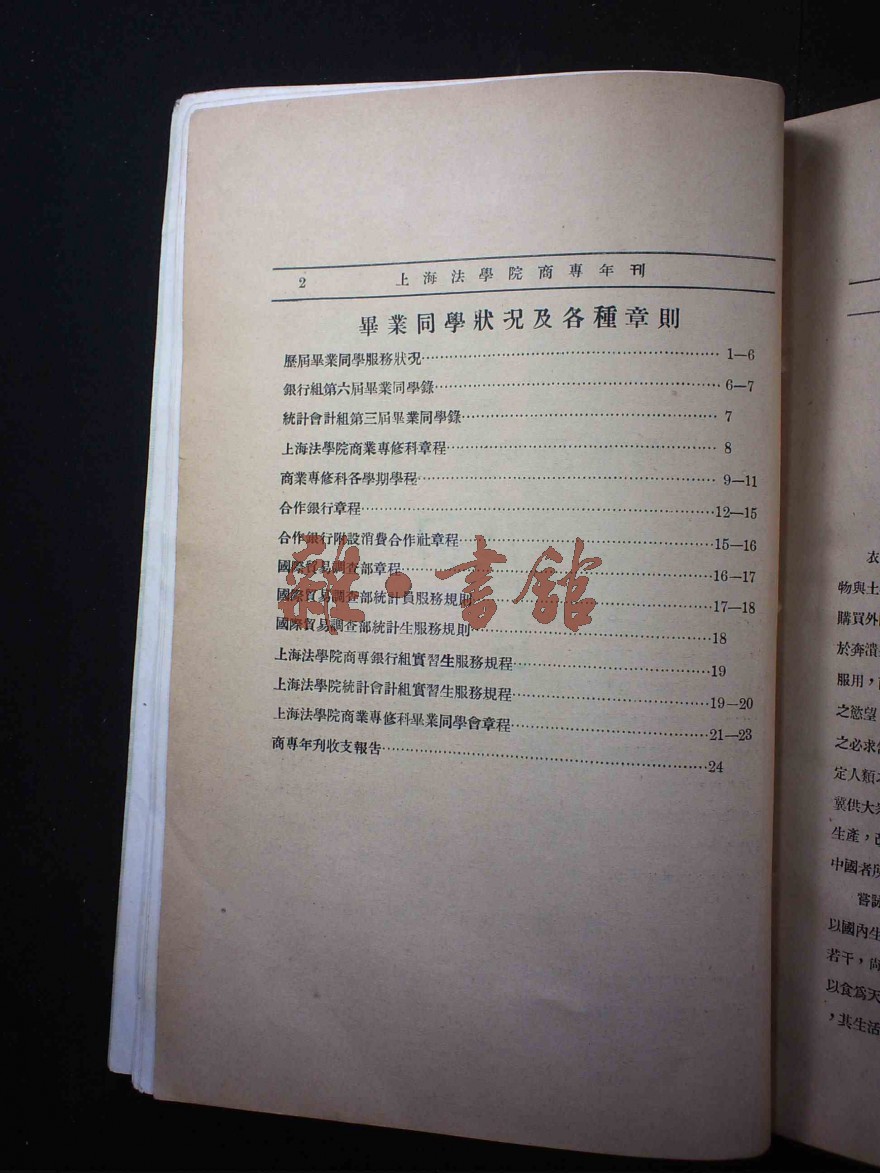 2 上海法學院商專年刊
畢業同學狀況及各種章則
歷屆畢業同學服務狀況 1—6
銀行組第六屆畢業同學錄 6—7
統計會計組第三屆畢業同學錄 7
上海法學院商業專修科章程 8
商業專修科各學期學程 9—11
合作銀行章程 12—15
合作銀行附設消費合作社章程 15—16
國際貿易調查部章程 16—17
國際貿易調查部統計員服務規則 17—18
國際貿易調查部統計生服務規則 18
上海法學院商專銀行組實習生服務規程 19
上海法學院統計會計組實習生服務規程 19—20
上海法學院商業專修科畢業同學會章程 21—23
商專年刊收支報告 24
雜·書館
衣
物與土
購買外
於奔潰
服用，
之慾望
之必求
定人類
冀供大
生產，
中國者
以國內生
若干，尚
以食爲天
，其生活